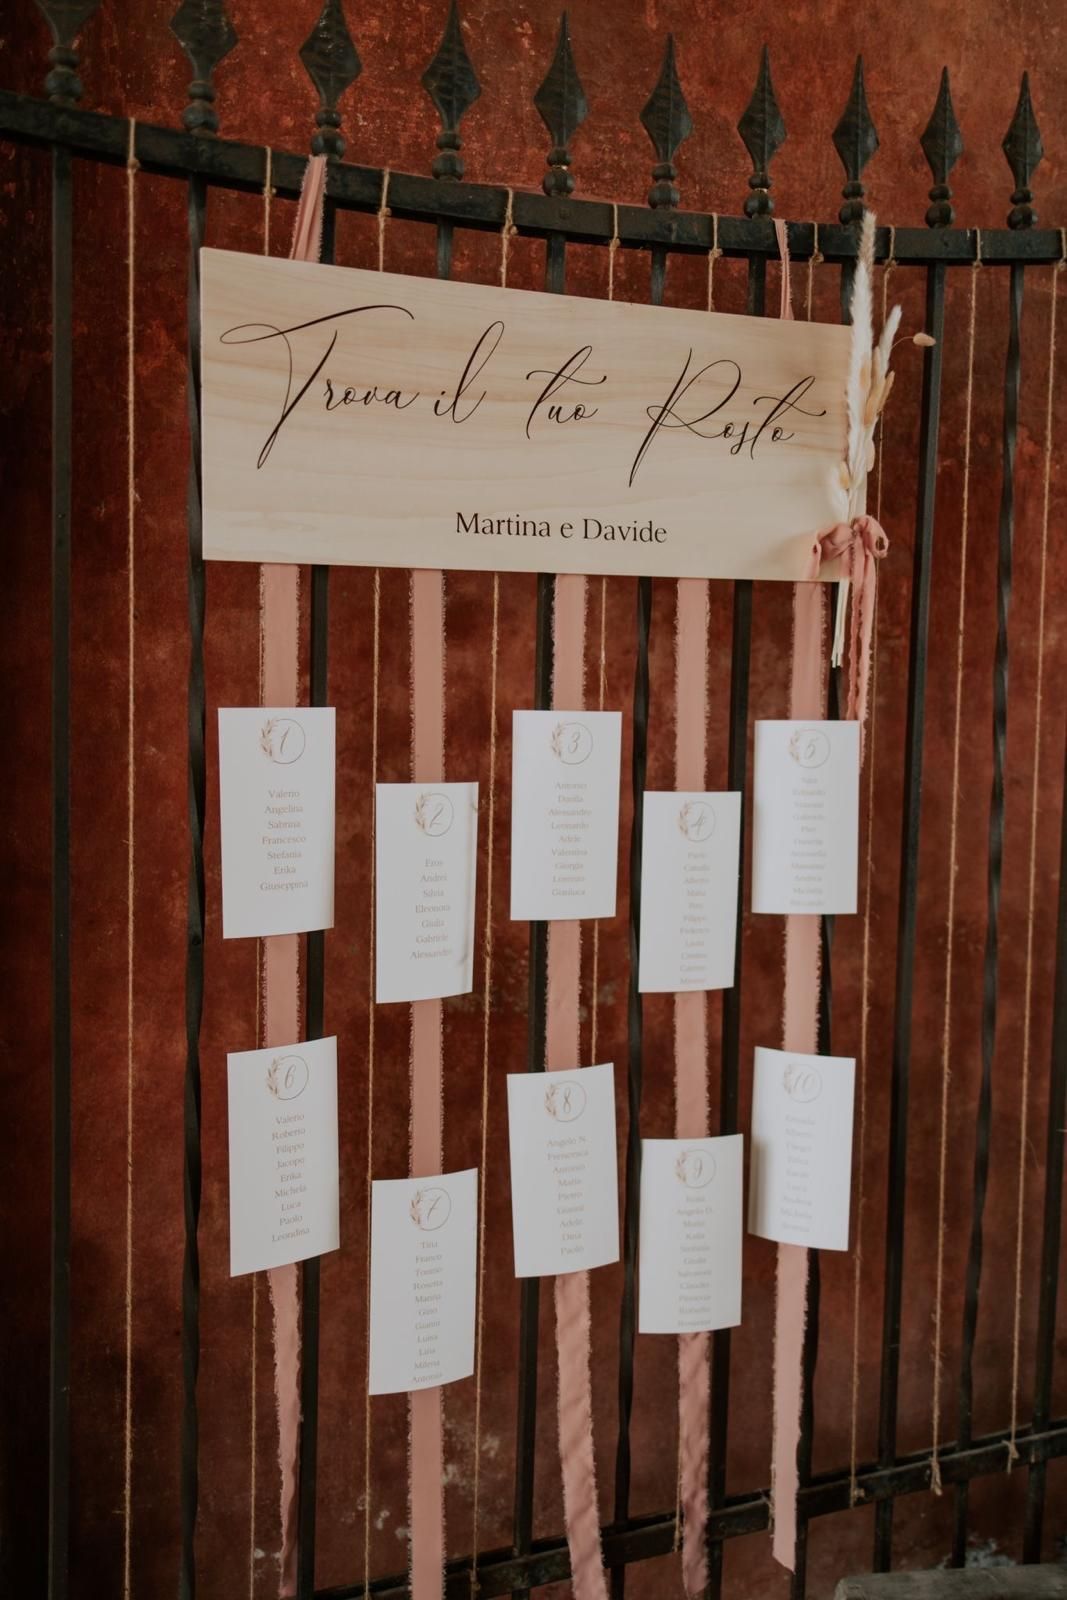 Trova il tuo Posto
Martina e Davide
1
Valerio
Angelina
Sabrina
Francesco
Stefania
Erika
Giuseppina
2
Eros
Andrei
Silvia
Eleonora
Giulia
Gabriele
Alessandro
3
Antonio
Danila
Alessandro
Leonardo
Adele
Valentina
Giorgia
Lorenzo
Gianluca
4
Paolo
Alberto
Filippo
Federico
5
Sara
Edoardo
Gabriele
Daniela
Antonella
Andrea
Michela
Riccardo
6
Valerio
Roberto
Filippo
Jacopo
Erika
Michela
Luca
Paolo
Leondina
7
Tina
Franco
Tonino
Rosetta
Marina
Gino
Gianni
Luisa
Lina
Milena
Antonio
8
Angelo N.
Francesca
Antonio
Maria
Pietro
Gianni
Adele
Dina
Paolo
9
Rosa
Angelo D.
Katia
Giulia
Salvatore
Claudio
Roberto
10
Alberto
Diego
Luca
Andrea
Michela